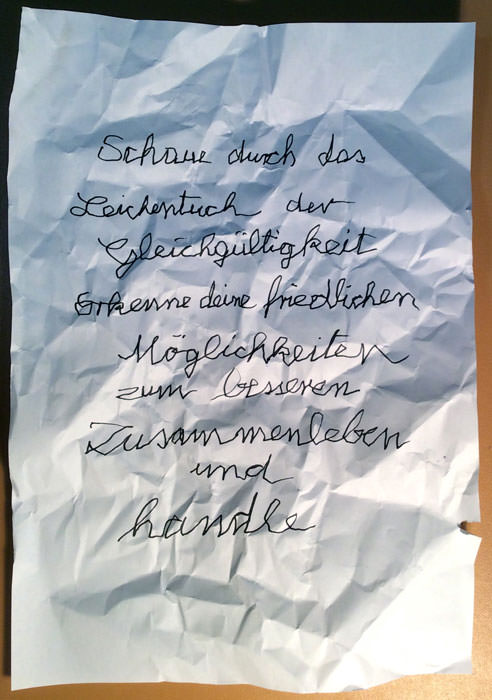 Schaue durch das
Leichentuch der
Gleichgültigkeit
Erkenne deine friedlichen
Möglichkeiten
zum besseren
Zusammenleben
und
handle